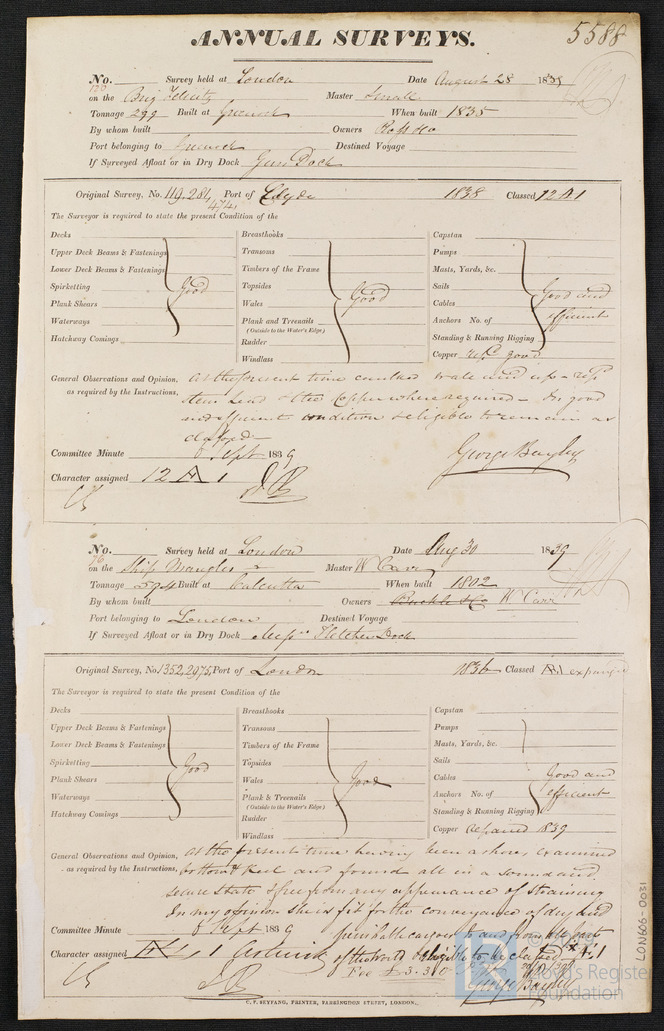 5588
ANNUAL SURVEYS.
No. Survey held at London Date August 28 1839
120
on the Brig Master Small
Tonnage 299 Built at Greenock When built 1835
By whom built Owners Ross & Co
Port belonging to Greenock Destined Voyage
If Surveyed Afloat or in Dry Dock Gun Dock
Original Survey, No. 119.281, Port of Clyde 1838 Classed 12 A 1
474
The Surveyor is required to state the present Condition of the
Decks Breasthooks Capstan
Upper Deck Beams & Fastenings Transoms Pumps
Lower Deck Beams & Fastenings Timbers of the Frame Masts, Yards, &c.
Spirketting Good Topsides Good Sails Good and
Plank Shears Wales Cables efficient
Waterways Plank and Treenails Anchors No. of
(Outside to the Water's Edge)
Hatchway Comings Rudder Standing & Running Rigging
Windlass Copper good
General Observations and Opinion, At the present time caulked wales and up
as required by the Instructions, Stem and the Copper where required - In good
and efficient condition & eligible to remain as
classed
Committee Minute Sept 1839 George Bayley
Character assigned 12 A 1
No. Survey held at London Date Aug 30 1839
76
on the Ship Mangles Master W Carr
Tonnage 594 Built at Calcutta When built 1802
By whom built Owners Buckle & Co W Carr
Port belonging to London Destined Voyage
If Surveyed Afloat or in Dry Dock Messrs Fletchers Dock
Original Survey, No. 1352.2975, Port of London 1836 Classed Æ.1 expunged
The Surveyor is required to state the present Condition of the
Decks Breasthooks Capstan
Upper Deck Beams & Fastenings Transoms Pumps
Lower Deck Beams & Fastenings Timbers of the Frame Masts, Yards, &c.
Spirketting Good Topsides Sails
Plank Shears Wales Good Cables Good and
Waterways Plank & Treenails Anchors No. of efficient
(Outside to the Water's Edge)
Hatchway Comings Rudder Standing & Running Rigging
Windlass Copper repaired 1839
General Observations and Opinion, At the present time having been ashore, examined
as required by the Instructions, bottom & Keel and found all in a sound and
secure state & free from any appearance of straining
In my opinion she is fit for the conveyance of dry and
Committee Minute 5 Sept 1839 perishable cargoes to and from all parts
Character assigned Æ 1 of the world & eligible to be classed Æ 1
Fee £ 3.3.0 George Bayley
C. F. SEYFANG, PRINTER, FARRINGDON STREET, LONDON.
LON606-0031
Lloyd's Register
Foundation